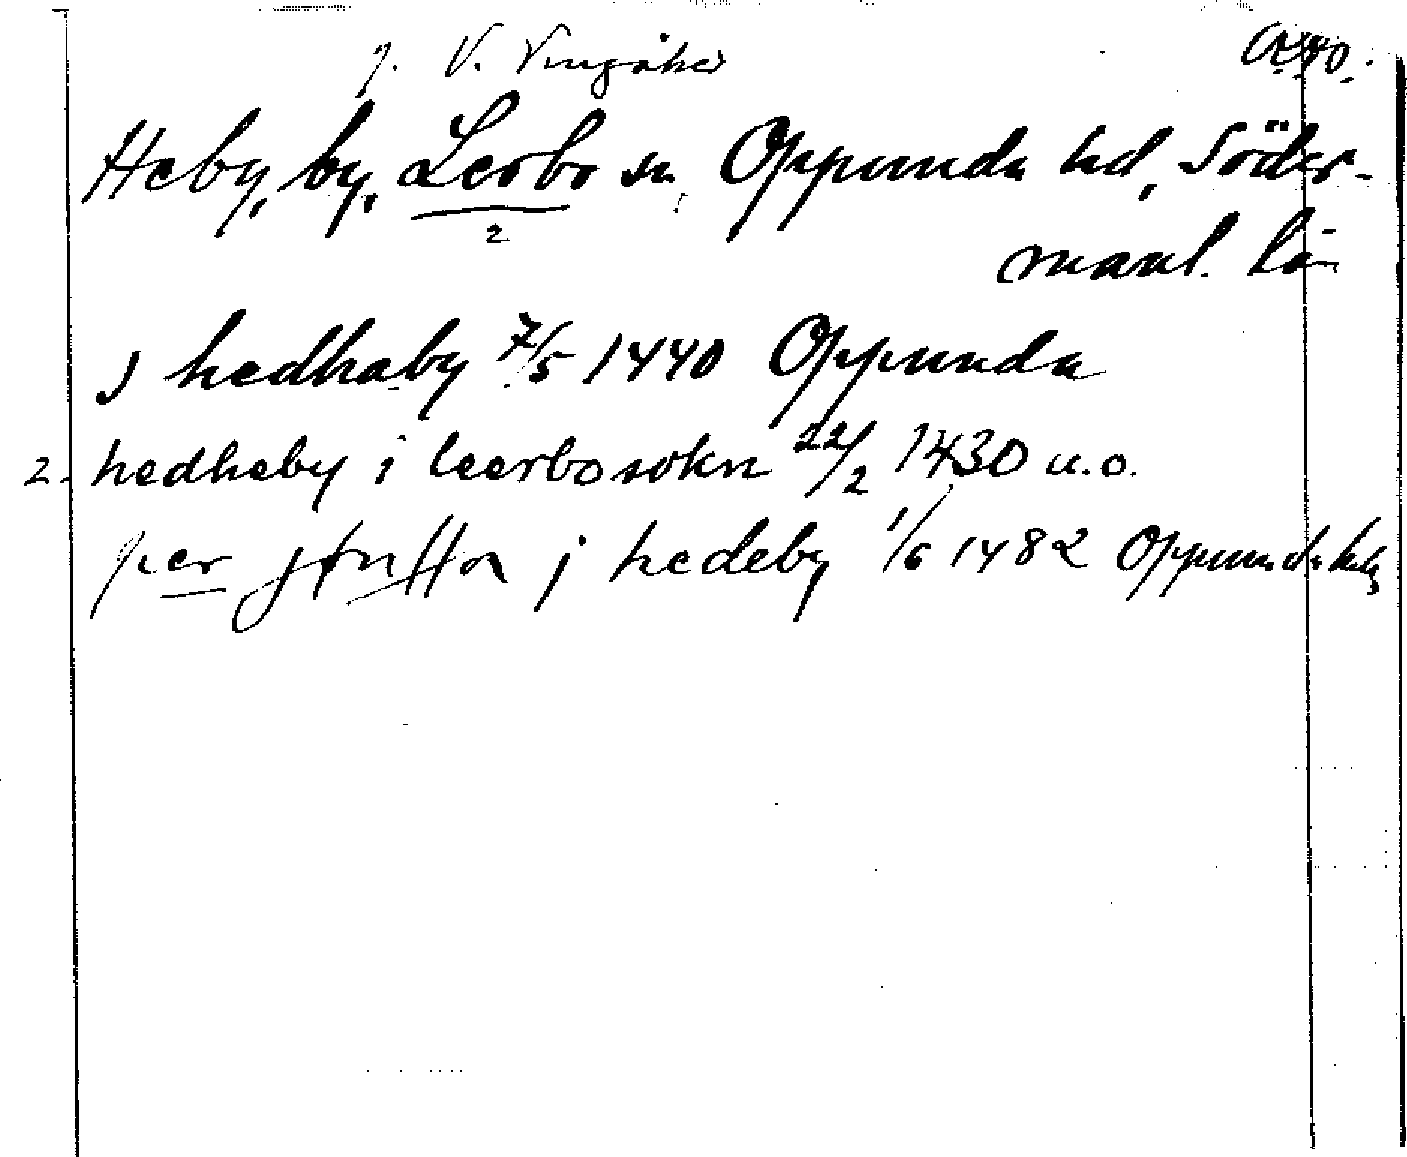 j. V. Vingåker
Heby, by, Lerbo sn, Oppunda hd, Söder-
2
manl. län
J hedhaby 7/5 1440 Oppunda
2. hedheby i leerbosokn 22/2 1430 u.o.
per j hedeby 1/6 1482 Oppunda